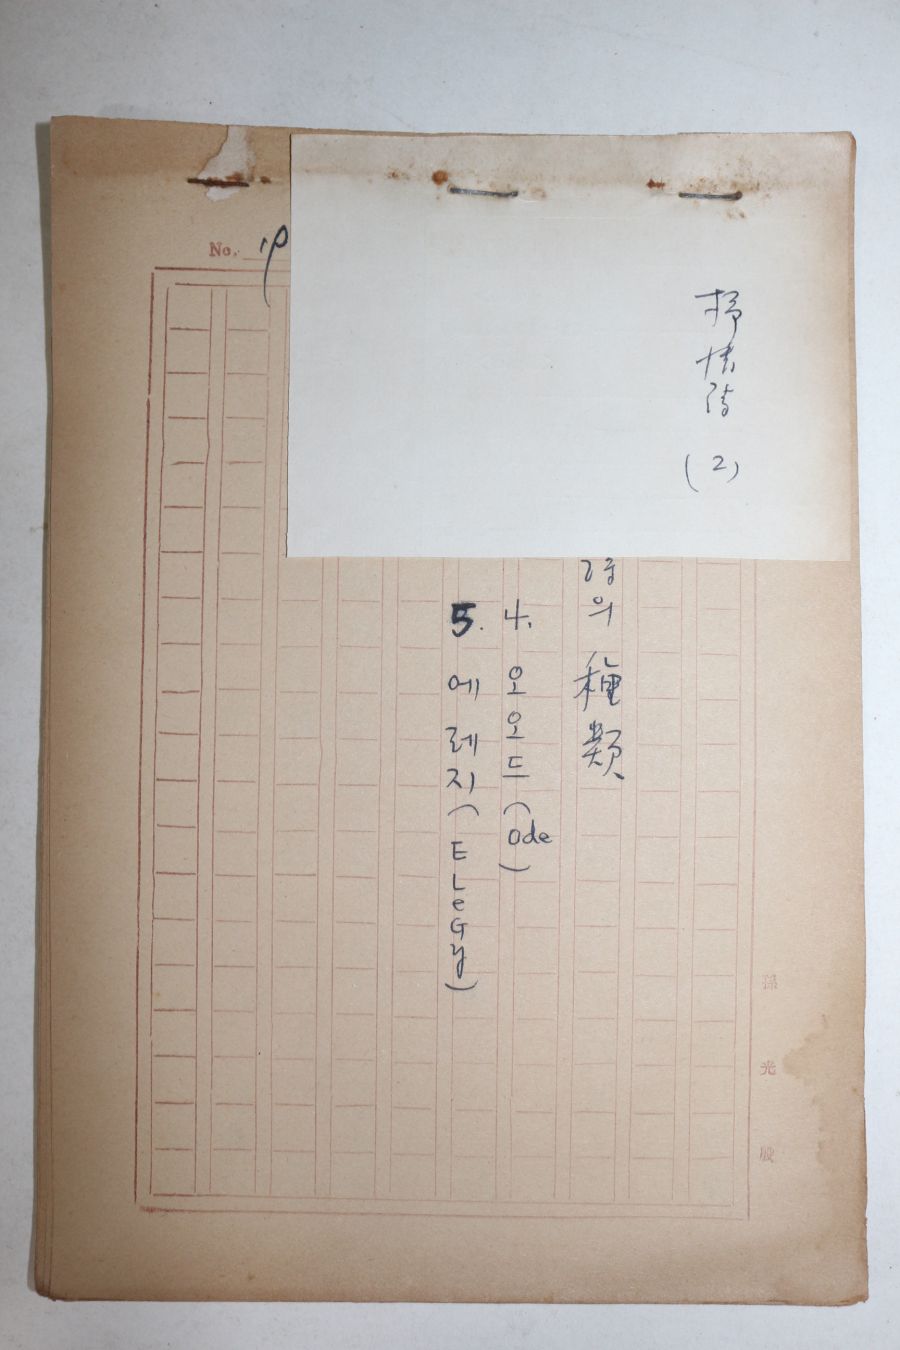 抒情詩
(2)
No.
詩의 種類
4. 오오드 (Ode)
5. 에레지 (ELeGy)